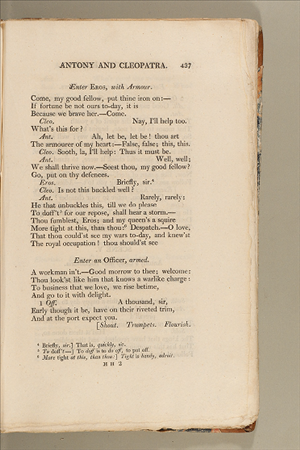 ANTONY AND CLEOPATRA. 427
Enter EROS, with Armour.
Come, my good fellow, put thine iron on:—
If fortune be not ours to-day, it is
Because we brave her.—Come.
Cleo. Nay, I'll help too.
What's this for?
Ant. Ah, let be, let be! thou art
The armourer of my heart:—False, false; this, this.
Cleo. Sooth, la, I'll help: Thus it must be.
Ant. Well, well;
We shall thrive now.—Seest thou, my good fellow?
Go, put on thy defences.
Eros. Briefly, sir.⁴
Cleo. Is not this buckled well?
Ant. Rarely, rarely:
He that unbuckles this, till we do please
To doff't⁵ for our repose, shall hear a storm.—
Thou fumblest, Eros; and my queen's a squire
More tight at this, than thou:⁶ Despatch.—O love,
That thou could'st see my wars to-day, and knew'st
The royal occupation! thou should'st see
Enter an Officer, armed.
A workman in't.—Good morrow to thee; welcome:
Thou look'st like him that knows a warlike charge:
To business that we love, we rise betime,
And go to it with delight.
1 Off. A thousand, sir,
Early though it be, have on their riveted trim,
And at the port expect you.
[Shout. Trumpets. Flourish.
⁴ Briefly, sir.] That is, quickly, sir.
⁵ To doff't—] To doff is to do off, to put off.
⁶ More tight at this, than thou:] Tight is handy, adroit.
H H 2